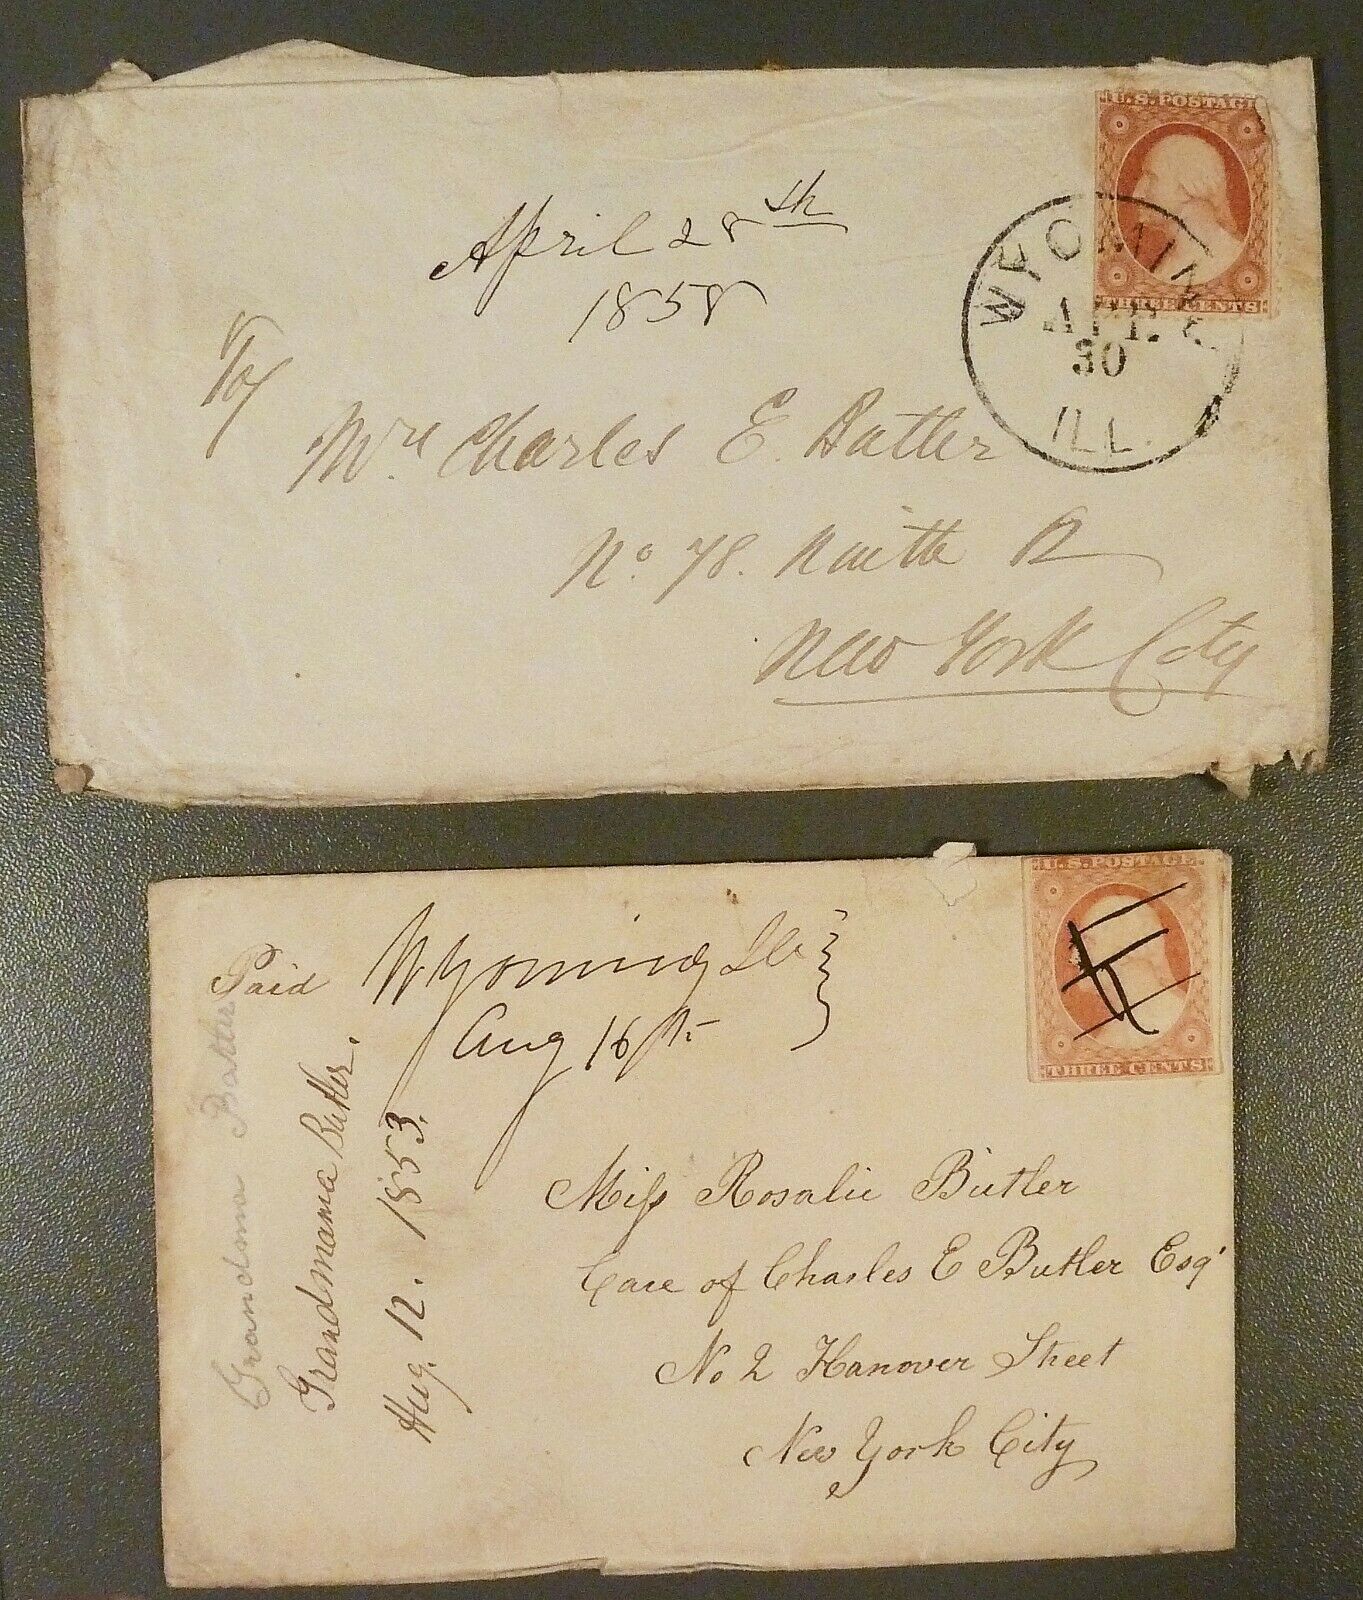 U.S. POSTAGE
THREE CENTS
WYOMIN
APR
30
ILL.
April 28th
1858
To
Mrs Charles E. Butler
No. 78.
New York City
U.S. POSTAGE
THREE CENTS
Paid
Wyoming Ill
Aug 16th
Grandma Butler
Grandmama Butler.
Aug. 12. 1853.
Miss Rosalie Butler
Care of Charles E Butler Esqr
No 2 Hanover Street
New York City